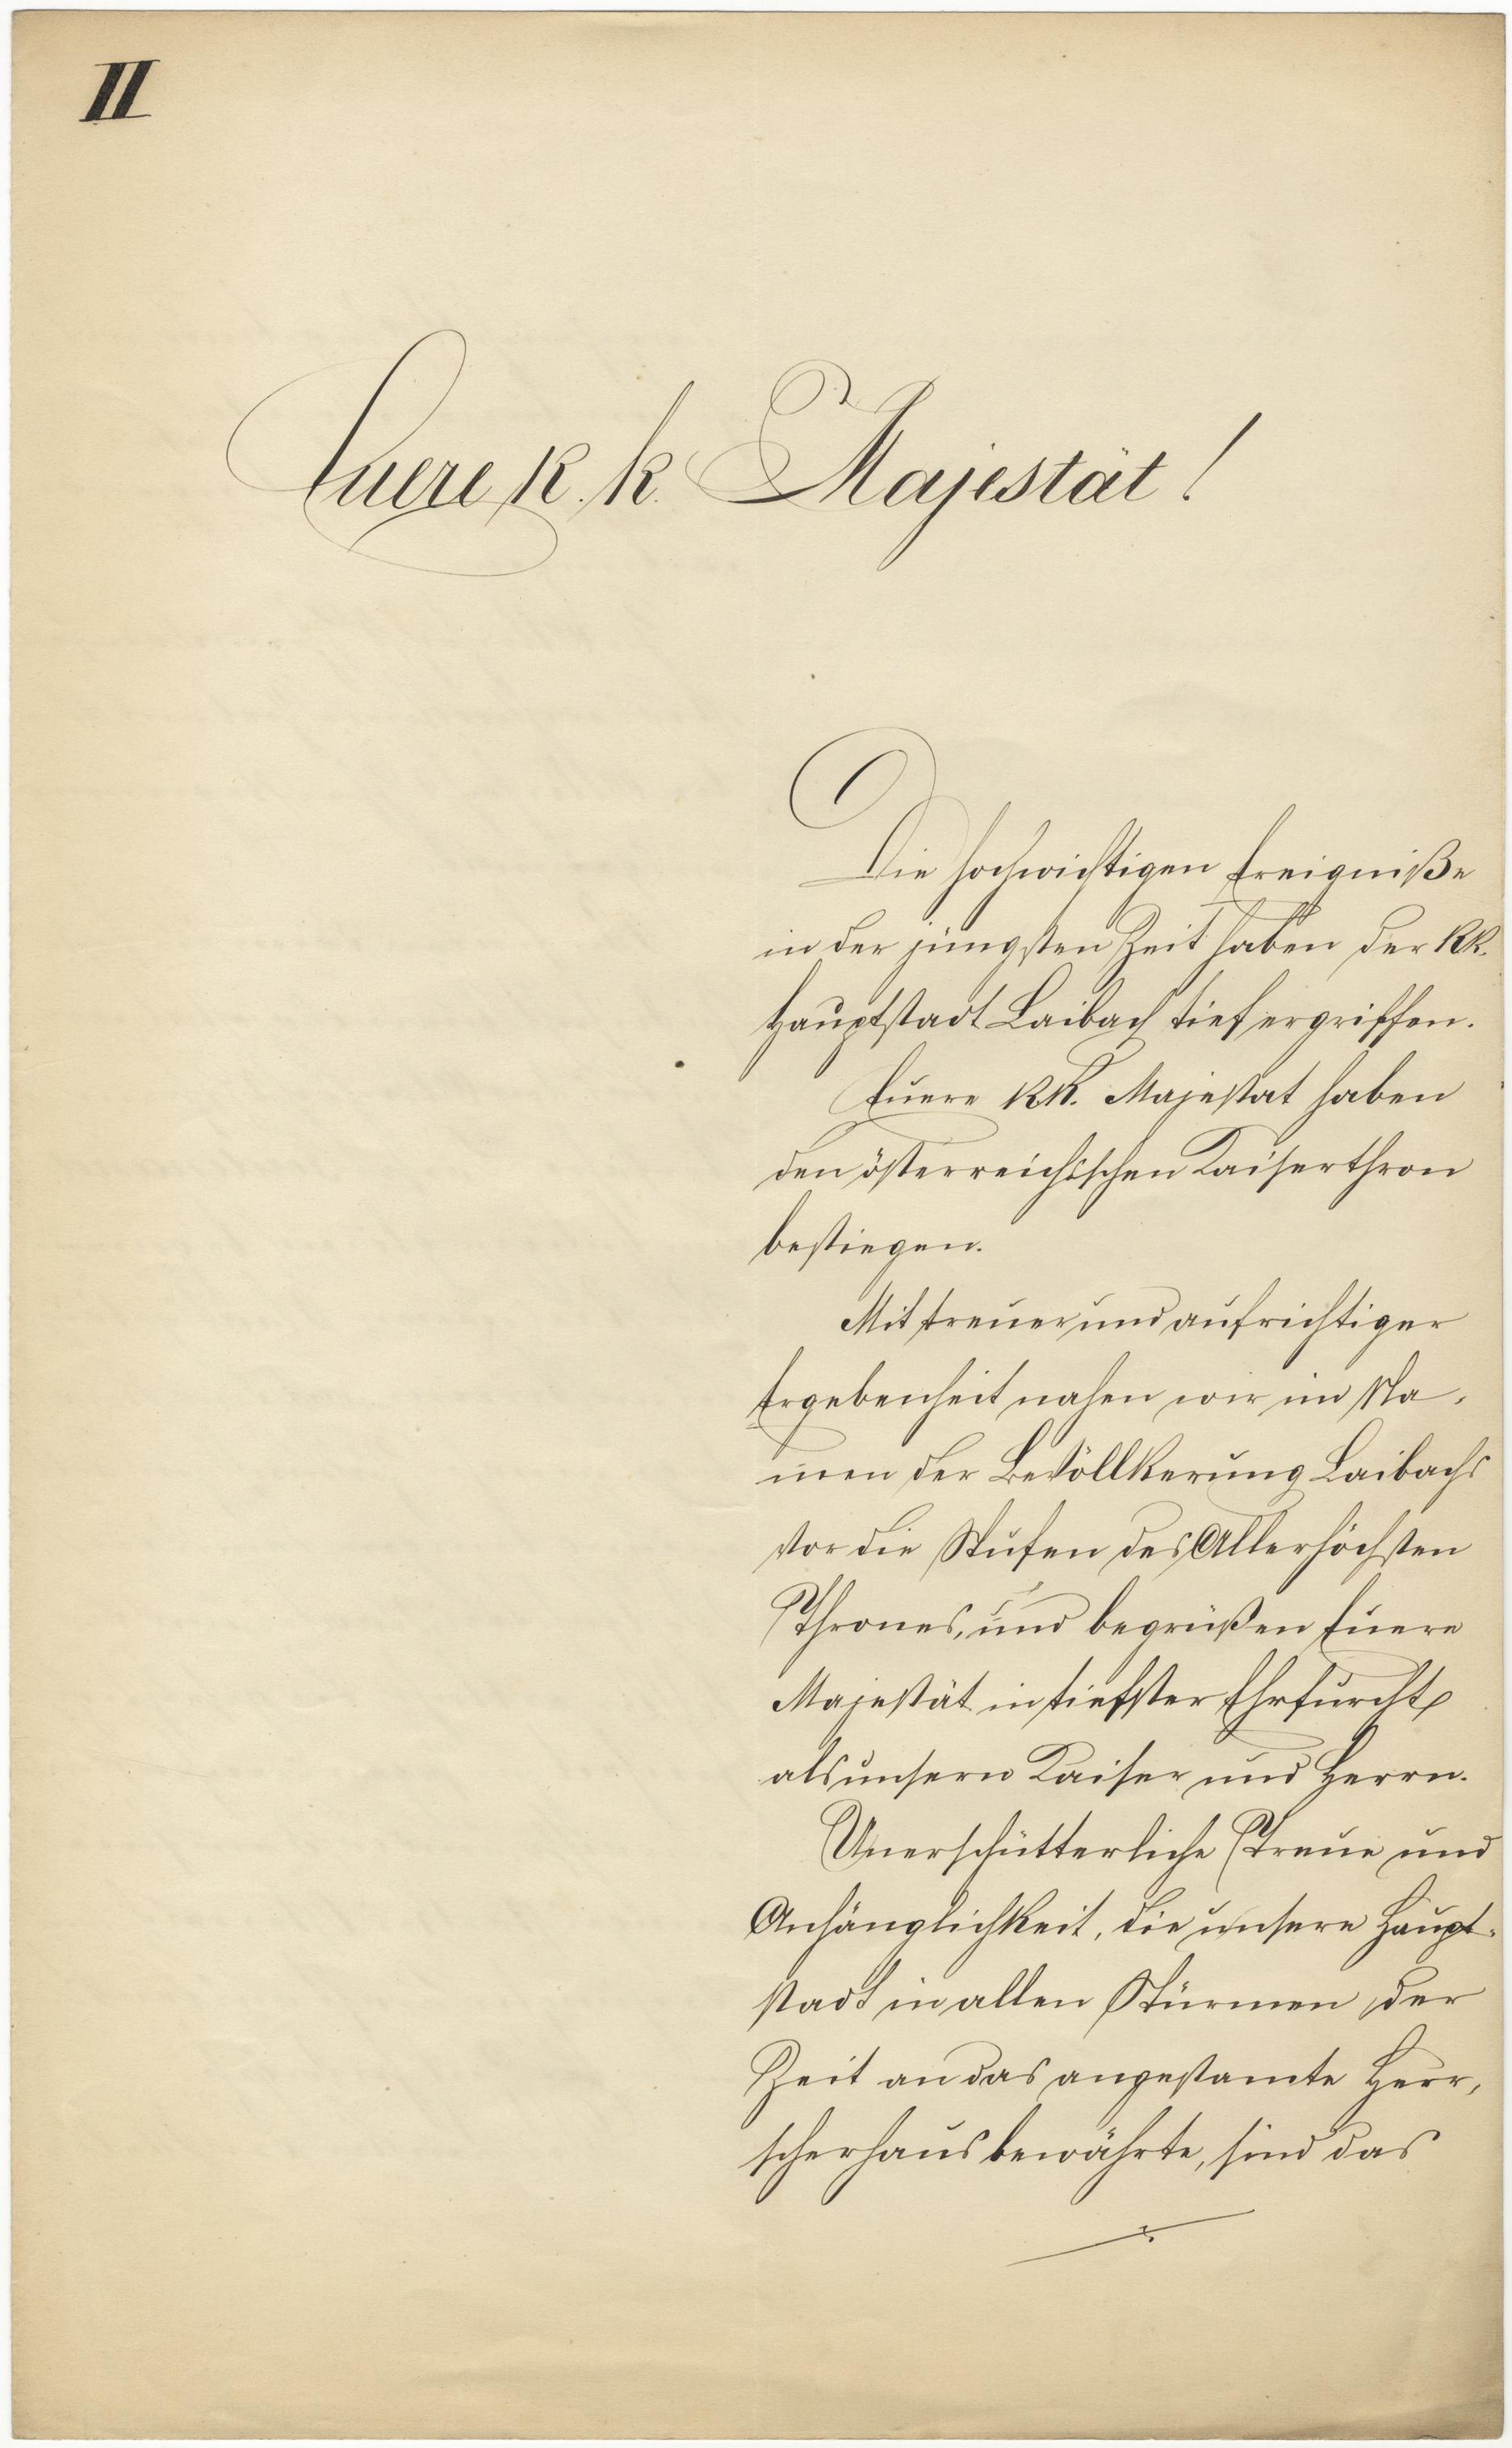 II
Euere k. k. Majestät!
Die hochwichtigen Ereigniße
in der jüngsten Zeit haben der kk.
Hauptstadt Laibach tief ergriffen.
Euere kk. Majestat haben
den österreichischen Kaiserthron
bestiegen.
Mit treuer und aufrichtiger
Ergebenheit nahen wir im Na-
men der Bevöllkerung Laibachs
vor die Stufen des Allerhöchsten
Thrones, und begrüßen Euere
Majestät in tiefster Ehrfurcht
als unsern Kaiser und Herrn.
Unerschütterliche Treue und
Anhänglichkeit, die unsere Haupt-
stadt in allen Stürmen der
Zeit an das angestamte Herr-
scherhaus bewährte, sind das